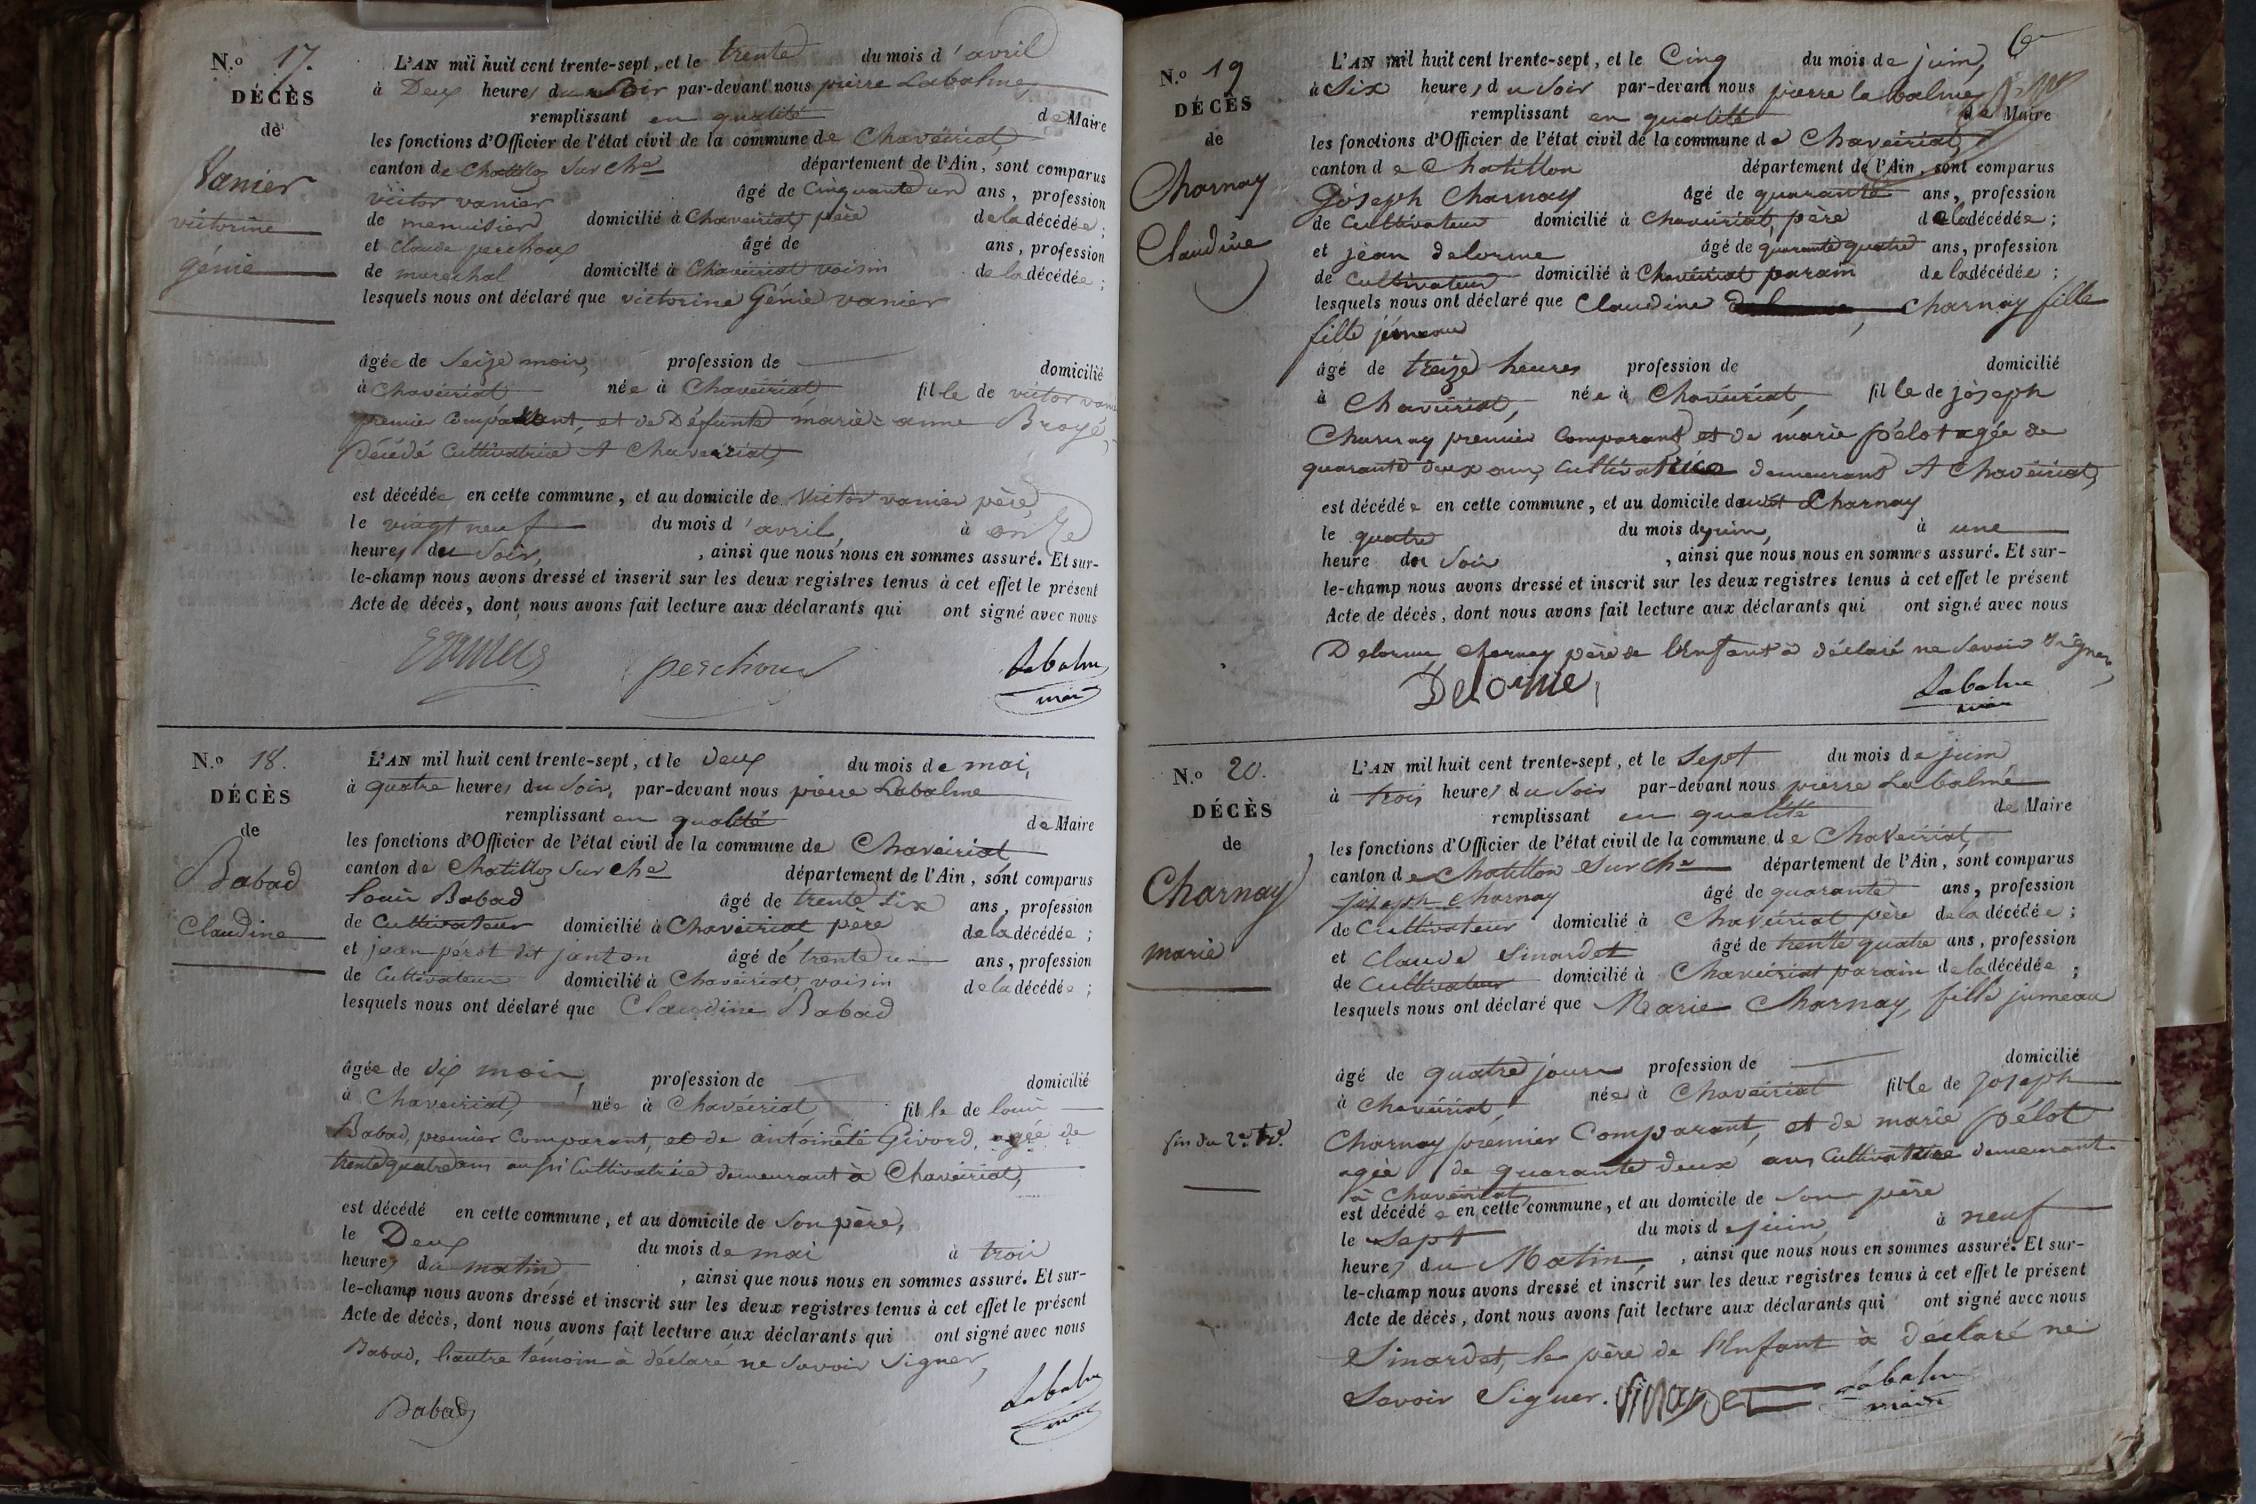 N.o 17.
DÉCÈS
de
Vanier
victorine
génie
L'AN mil huit cent trente-sept, et le trente du mois d'avril
à Deux heures du soir par-devant nous pierre Labalme
remplissant en qualité de Maire
les fonctions d'Officier de l'état civil de la commune de Chavéiriat
canton de Chatillon sur Che département de l'Ain, sont comparus
victor vanier âgé de Cinquante un ans, profession
de menuisier domicilié à Chaveiriat, père de la décédée ;
et claude perchoux âgé de ans, profession
de marechal domicilié à Chaveiriat voisin de la décédée ;
lesquels nous ont déclaré que victorine Génie vanier
âgée de Seize mois, profession de domicilié
à Chavéiriat née à Chaveiriat fille de victor vanier
premier comparant, et de Défunte marie anne Broyé,
décédé Cultivatrice A Chaveiriat,
est décédée en cette commune, et au domicile de victor vanier père
le vingt neuf du mois d'avril, à onze
heures du Soir, , ainsi que nous nous en sommes assuré. Et sur-
le-champ nous avons dressé et inscrit sur les deux registres tenus à cet effet le présent
Acte de décès, dont nous avons fait lecture aux déclarants qui ont signé avec nous
perchoux Labalme
maire
N.o 18.
DÉCÈS
de
Babad
Claudine
L'AN mil huit cent trente-sept, et le Deux du mois de mai,
à quatre heures du Soir, par-devant nous pierre Labalme
remplissant en qualité de Maire
les fonctions d'Officier de l'état civil de la commune de Chaveiriat
canton de Chatillon sur Che département de l'Ain, sont comparus
Louis Babad âgé de trente six ans, profession
de Cultivateur domicilié à Chaveiriat, père de la décédée ;
et jean pérot dit janton âgé de trente un ans, profession
de Cultivateur domicilié à Chaveiriat, voisin de la décédée ;
lesquels nous ont déclaré que Claudine Babad
âgée de Six mois, profession de domicilié
à Chaveiriat, née à Chavéiriat, fille de louis
Babad, premier Comparant, et de antoinete Givord, agée de
trente quatre ans aussi Cultivatrice demeurant à Chaveiriat,
est décédé en cette commune, et au domicile de Son père,
le Deux du mois de mai à trois
heures du matin , ainsi que nous nous en sommes assuré. Et sur-
le-champ nous avons dressé et inscrit sur les deux registres tenus à cet effet le présent
Acte de décès, dont nous avons fait lecture aux déclarants qui ont signé avec nous
Babad, l'autre témoin à déclaré ne Savoir Signer,
Babad Labalme
maire
6
N.o 19
DÉCÈS
de
Charnay
Claudine
L'AN mil huit cent trente-sept, et le Cinq du mois de juin,
à Six heures du Soir par-devant nous pierre la balme
remplissant en qualité de Maire
les fonctions d'Officier de l'état civil de la commune de Chaveiriat
canton de Chatillon département de l'Ain, sont comparus
Joseph Charnay âgé de quarante ans, profession
de Cultivateur domicilié à Chaveiriat, père de la décédée ;
et jean delorme âgé de quarante quatre ans, profession
de Cultivateur domicilié à Chavéiriat parain de la décédée ;
lesquels nous ont déclaré que Claudine Charnay fille
fille jumeau
âgé de treize heures profession de domicilié
à Chaveiriat, née à Chavéiriat, fille de joseph
Charnay premier Comparant et de marie pélot agée de
quarante deux ans, Cultivatrice demeurant A Chavéiriat,
est décédée en cette commune, et au domicile dudit Charnay
le quatre du mois de juin, à une
heure du Soir , ainsi que nous nous en sommes assuré. Et sur-
le-champ nous avons dressé et inscrit sur les deux registres tenus à cet effet le présent
Acte de décès, dont nous avons fait lecture aux déclarants qui ont signé avec nous
Delorme, Charnay père de l'Enfant à déclaré ne Savoir Signer,
Delorme Labalme
maire
N.o 20.
DÉCÈS
de
Charnay
marie
L'AN mil huit cent trente-sept, et le Sept du mois de juin
à trois heures du Soir par-devant nous pierre Labalme
remplissant en qualité de Maire
les fonctions d'Officier de l'état civil de la commune de Chaveiriat,
canton de Chatillon Sur Che département de l'Ain, sont comparus
joseph Charnay âgé de quarante ans, profession
de Cultivateur domicilié à Chavéiriat père de la décédée ;
et Claude Sinardet âgé de trente quatre ans, profession
de Cultivateur domicilié à Chaveiriat parain de la décédée ;
lesquels nous ont déclaré que Marie Charnay, fille jumeau
âgé de quatre jours profession de domicilié
à Chavéiriat, née à Chaveiriat fille de Joseph
Charnay premier Comparant, et de marie pélot
agée de quarante deux ans Cultivatrice demeurant
à Chavéiriat,
est décédée en cette commune, et au domicile de Son père
le Sept du mois de juin, à neuf
heures du Matin, , ainsi que nous nous en sommes assuré. Et sur-
le-champ nous avons dressé et inscrit sur les deux registres tenus à cet effet le présent
Acte de décès, dont nous avons fait lecture aux déclarants qui ont signé avec nous
Sinardet, le père de l'Enfant à déclaré ne
Savoir Signer. Sinardet Labalme
maire
fin du 2e